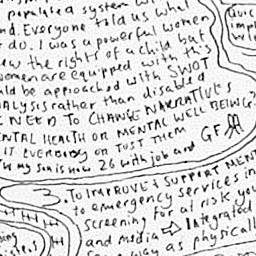 populated system wi
nd. Everyone told us what
do. I was a powerful women
ew the rights of a child but
women are equipped with this
uld be approached with SWOT
ALYSIS rather than disabled
E NEED TO CHANGE NARRATIVES
ENTAL HEALTH OR MENTAL WELL BEING?
IT EVERBODY OR JUST THEM
GF
my son is now 26 with job and
3. TO IMPROVE & SUPPORT MEN
to emergency services in
screening for at risk you
and media ⇨ Integrated
way as physicall